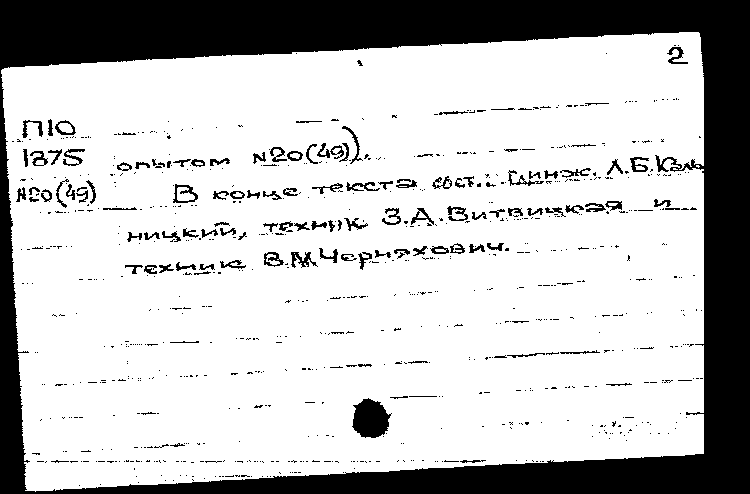 2
П10
1375 опытом №20(49)).
№20(49) В конце текста сост.: инж. Л.Б.Каль
ницкий, техник З.А.Витвицкая и
техник В.М.Черняхович.